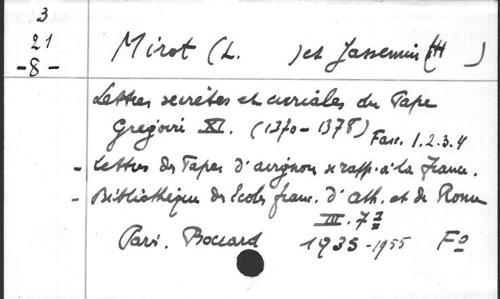 3
21
-8-
Mirot (L. ) et Jassemin (H )
Lettres secrètes et curiales du Pape
Grégoire XI. (1370-1378) Fasc. 1.2.3.4
- Lettres des Papes d'avignon se rapp. à la France.
- Bibliothèque des Ecoles franc. d'Ath. et de Rome
III. 7
Paris. Boccard 1935-1955 Fo